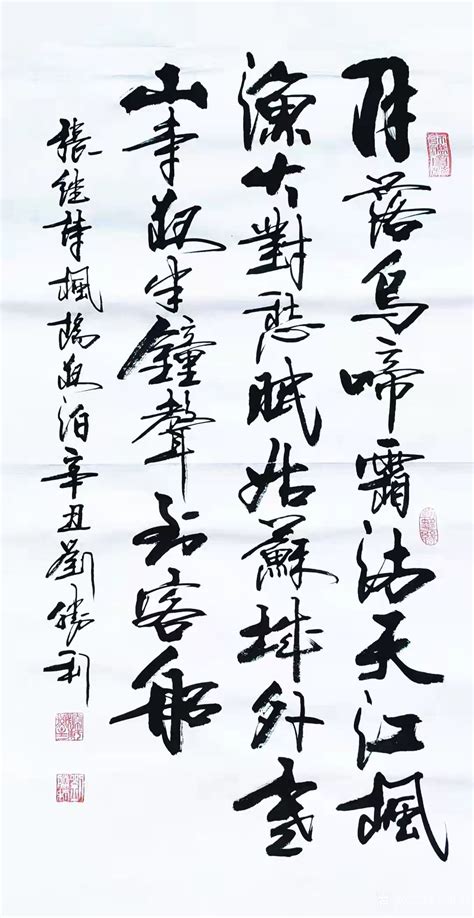 月落烏啼霜满天江楓
漁火對愁眠姑蘇城外寒
山寺夜半鐘聲到客船
張继詩楓橋夜泊辛丑劉勝利